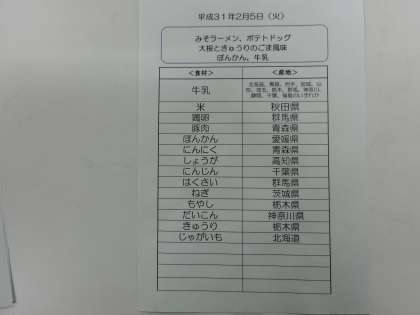 平成31年2月5日（火）
みそラーメン、ポテトドッグ
大根ときゅうりのごま風味
ぽんかん、牛乳
＜食材＞ ＜産地＞
牛乳
米 秋田県
鶏卵 群馬県
豚肉 青森県
ぽんかん 愛媛県
にんにく 青森県
しょうが 高知県
にんじん 千葉県
はくさい 群馬県
ねぎ 茨城県
もやし 栃木県
だいこん 神奈川県
きゅうり 栃木県
じゃがいも 北海道